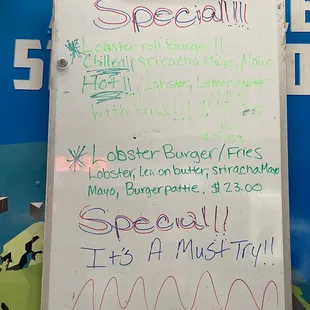 Special!!!
Lobster roll Burge !!
Chilled, sriracha Mayo, Mayo
Hot!!, Lobster, Lemon buter
with fries!!!
Lobster Burger/Fries
Lobster, Lemon butter, sriracha Mayo
Mayo, Burger pattie, $23.00
Special!!
It's A Must Try!!